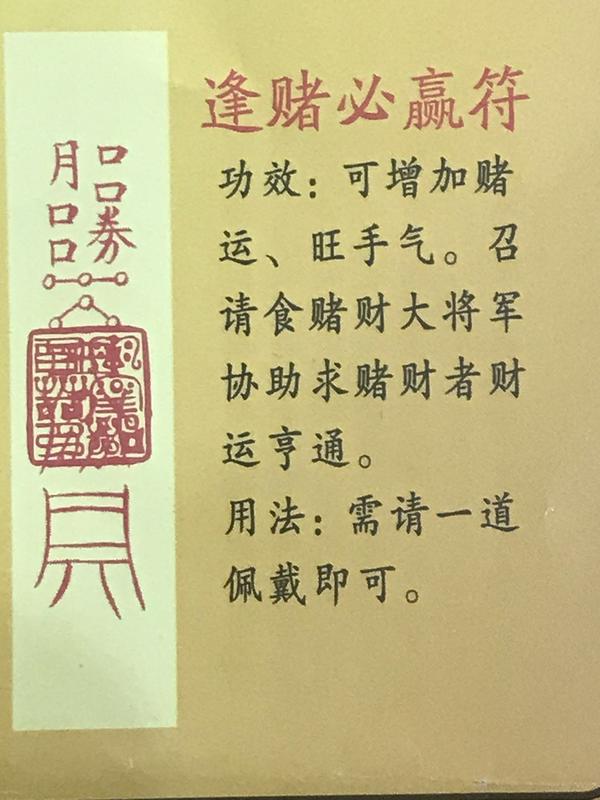 逢赌必赢符
功效：可增加赌
运、旺手气。召
请食赌财大将军
协助求赌财者财
运亨通。
用法：需请一道
佩戴即可。